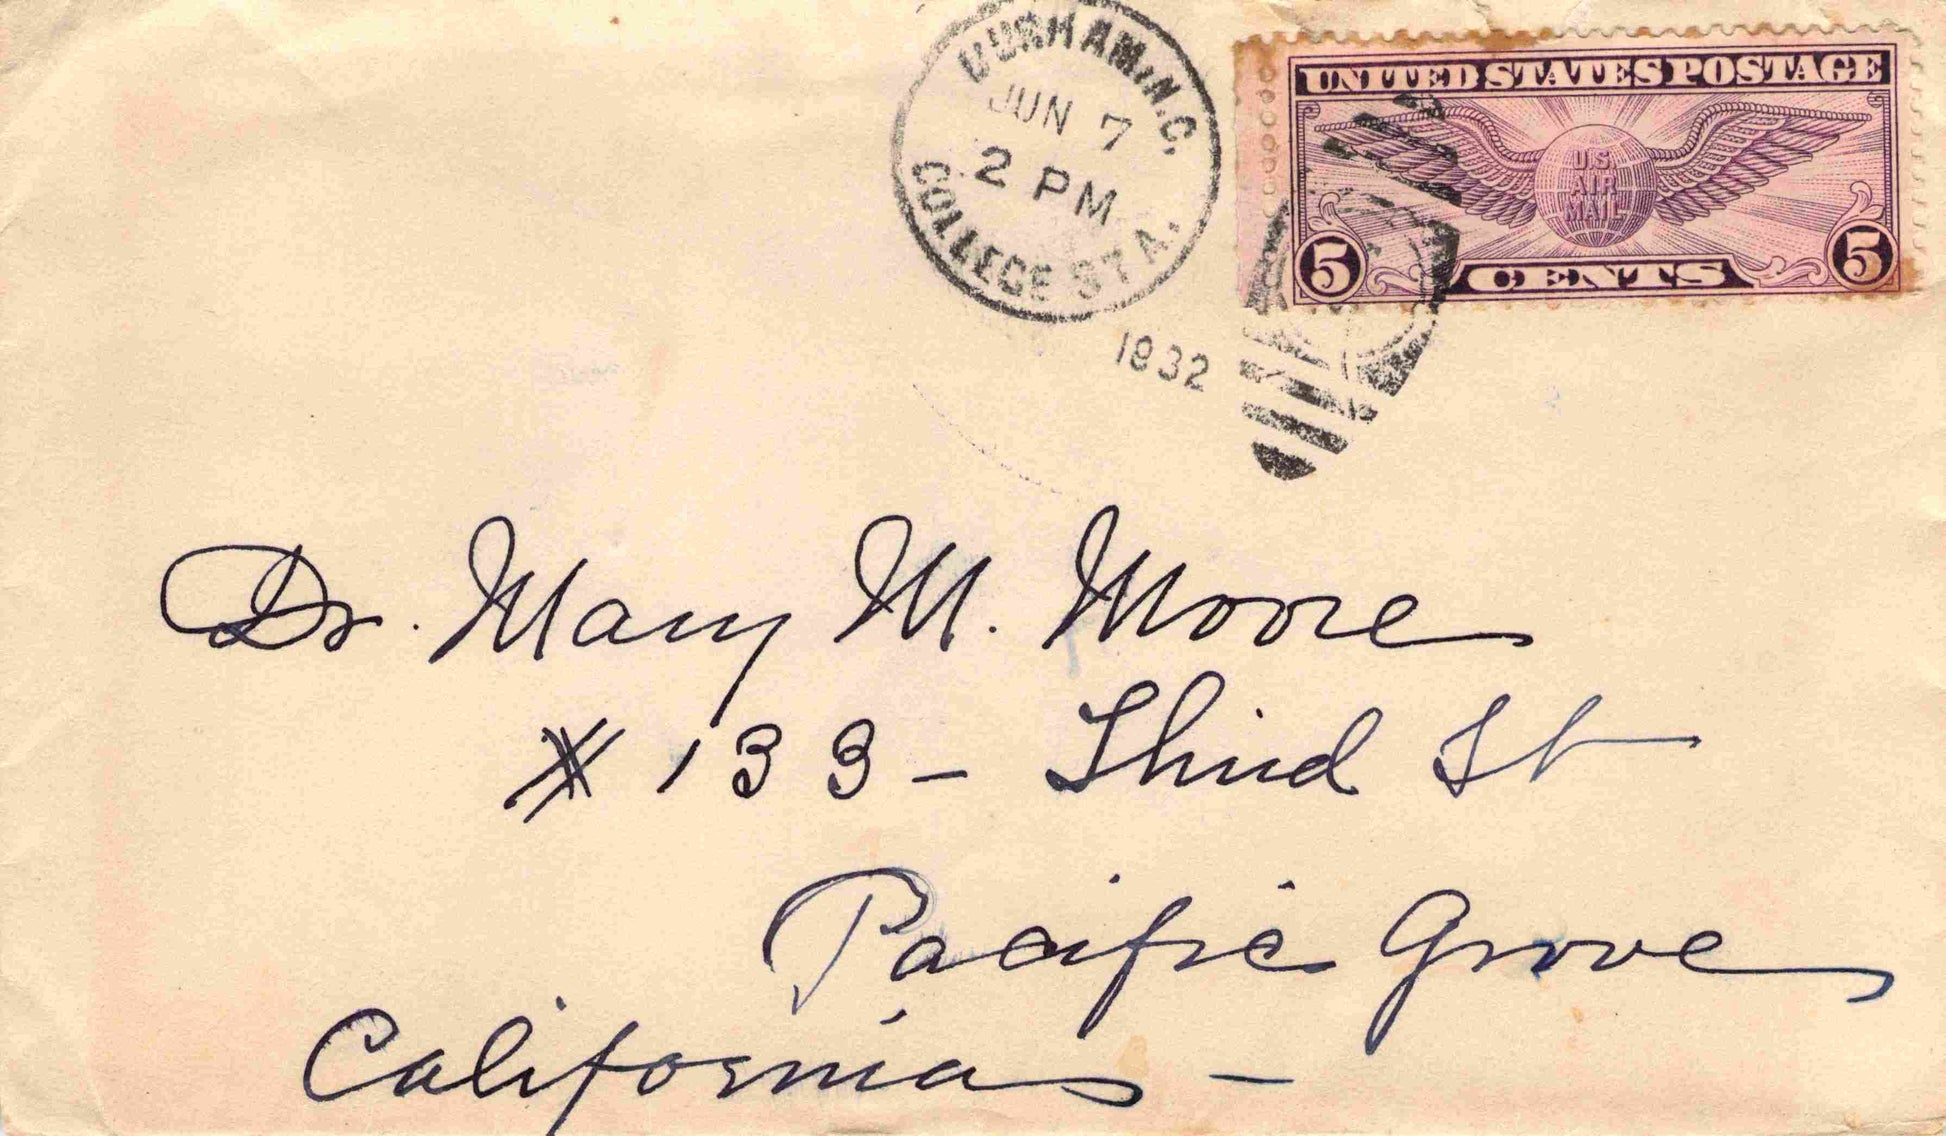 DURHAM, N.C.
JUN 7
2 PM
COLLEGE STA.
1932
UNITED STATES POSTAGE
U.S.
AIR
MAIL
5 CENTS 5
Dr. Mary M. Moore
# 133 - Third St
Pacific Grove
California -